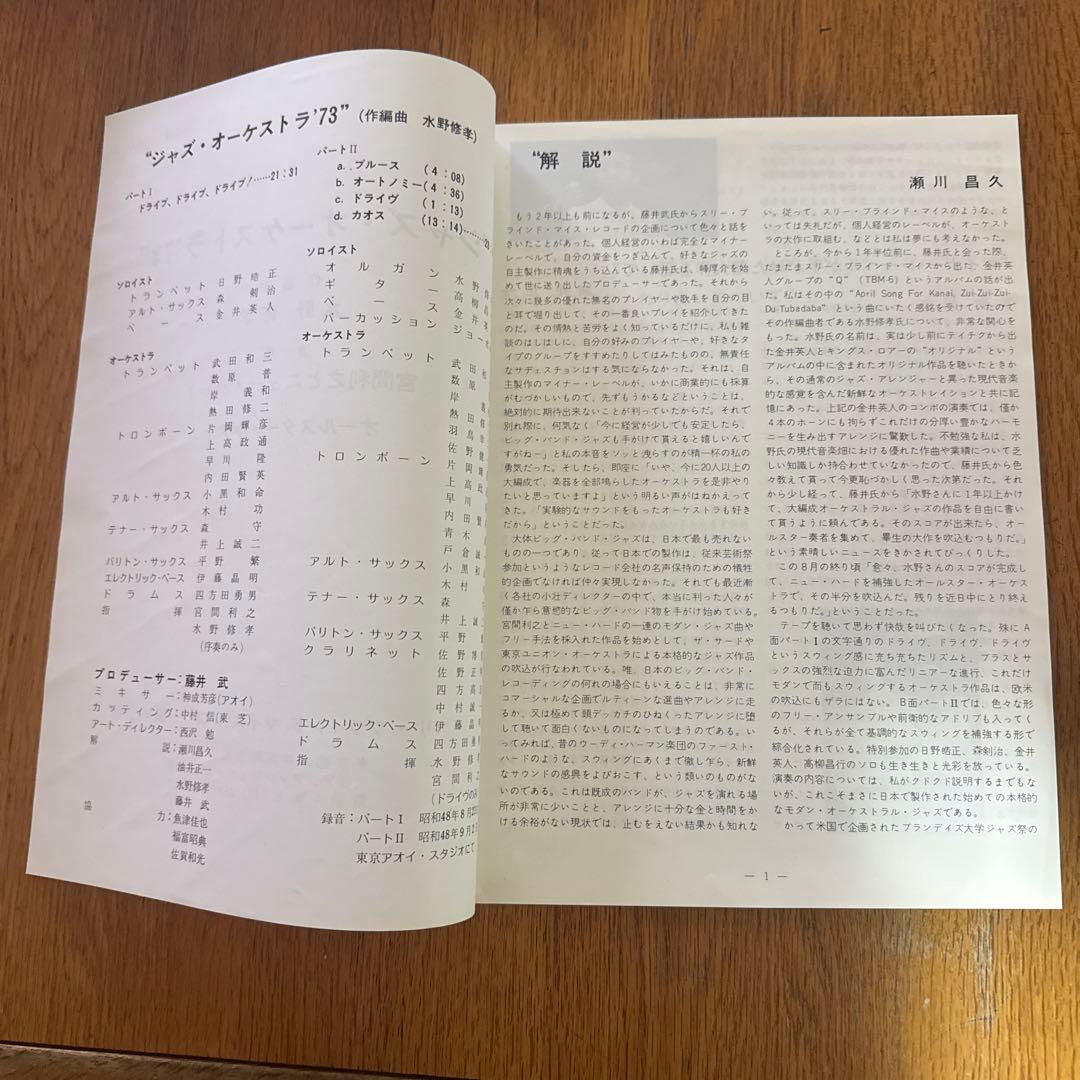 “ジャズ・オーケストラ’73” (作編曲　水野修孝)
パートⅠ
ドライブ、ドライブ、ドライブ！……21：31
パートⅡ
a. ブルース (4：08)
b. オートノミー (4：36)
c. ドライヴ (1：13)
d. カオス (13：14)
ソロイスト
トランペット 日野皓正
アルト・サックス 森 剣治
ベース 金井英人
オーケストラ
トランペット 武田和三
数原 晋
岸 義和
熱田修二
トロンボーン 片岡輝彦
上高政通
早川 隆
内田賢英
アルト・サックス 小黒和命
木村 功
テナー・サックス 森 守
井上誠二
バリトン・サックス 平野 繁
エレクトリック・ベース 伊藤晶明
ドラムス 四方田勇男
指揮 宮間利之
水野修孝
(序奏のみ)
プロデューサー：藤井 武
ミキサー：神成芳彦(アオイ)
カッティング：中村 信(東 芝)
アート・ディレクター：西沢 勉
解説：瀬川昌久
油井正一
水野修孝
藤井 武
協力：魚津佳也
福富昭典
佐賀和光
ソロイスト
オルガン 水野
ギター 高柳
ベース 金井
パーカッション ジョー
オーケストラ
トランペット 武田
数原
岸
熱田
羽鳥
佐野
トロンボーン 片岡
上高
早川
内田
青木
戸倉
アルト・サックス 小黒
木村
テナー・サックス 森
井上
バリトン・サックス 平野
クラリネット 佐野博
佐野正
四方
中村
エレクトリック・ベース 伊藤晶
ドラムス 四方田勇
指揮 水野修
宮間利
(ドライヴのみ
録音：パートⅠ 昭和48年8月
パートⅡ 昭和48年9月
東京アオイ・スタジオにて
“解　説”
瀬川昌久
もう２年以上も前になるが、藤井武氏からスリー・ブ
ラインド・マイス・レコードの企画について色々と話を
きいたことがあった。個人経営のいわば完全なマイナー
レーベルで、自分の資金をつぎ込んで、好きなジャズの
自主製作に精魂をうち込んでいる藤井氏は、峰厚介を始
めて世に送り出したプロデューサーであった。それから
次々に幾多の優れた無名のプレイヤーや歌手を自分の目
と耳で堀り出して、その一番良いプレイを紹介してきた
のだ。その情熱と苦労をよく知っているだけに、私も雑
談のはしはしに、自分の好みのプレイヤーや、好きなタ
イプのグループをすすめたりしてはみたものの、無責任
なサデェスチョンはする気にならなかった。それは、自
主製作のマイナー・レーベルが、いかに商業的にも採算
がむづかしいもので、先ずもうかるなどということは、
絶対的に期待出来ないことが判っていたからだ。それで
別れ際に、何気なく「今に経営が少しでも安定したら、
ビッグ・バンド・ジャズも手がけて貰えると嬉しいんで
すがね―」と私の本音をソッと洩らすのが精一杯の私の
勇気だった。そしたら、即座に「いや、今に20人以上の
大編成で、楽器を全部鳴らしたオーケストラを是非やり
たいと思っていますよ」という明るい声がはねかえって
きた。「実験的なサウンドをもったオーケストラも好き
だから」ということだった。
大体ビッグ・バンド・ジャズは、日本で最も売れない
ものの一つであり、従って日本での製作は、従来芸術祭
参加というようなレコード会社の名声保持のための犠牲
的企画でなければ仲々実現しなかった。それでも最近漸
く各社の小壮ディレクターの中で、本当に判った人々が
僅か乍ら意慾的なビッグ・バンド物を手がけ始めている。
宮間利之とニュー・ハードの一連のモダン・ジャズ曲や
フリー手法を採入れた作品を始めとして、ザ・サードや
東京ユニオン・オーケストラによる本格的なジャズ作品
の吹込が行なわれている。唯、日本のビッグ・バンド・
レコーディングの何れの場合にもいえることは、非常に
コマーシャルな企画でルティーンな選曲やアレンジに走
るか、又は極めて頭デッカチのひねくったアレンジに堕
して聴いて面白くないものになってしまうのである。い
ってみれば、昔のウーディ・ハーマン楽団のファースト・
ハードのような、スウィングにあくまで徹し乍ら、新鮮
なサウンドの感興をよびおこす、という類いのものがな
いのである。これは既成のバンドが、ジャズを演れる場
所が非常に少いことと、アレンジに十分な金と時間をか
ける余裕がない現状では、止むをえない結果かも知れな
い。従って、スリー・ブラインド・マイスのような、と
いっては失礼だが、個人経営のレーベルが、オーケスト
ラの大作に取組む、などとは私は夢にも考えなかった。
ところが、今から１年半位前に、藤井氏と会った際、
たまたまスリー・ブラインド・マイスから出た、金井英
人グループの“Q”（TBM-6）というアルバムの話が出
た。私はその中の“April Song For Kanai, Zui-Zui-Zui-
Du-Tubadaba”という曲にいたく感銘を受けていたので
その作編曲者である水野修孝氏について、非常な関心を
もった。水野氏の名前は、実は少し前にテイチクから出
た金井英人とキングス・ロアーの“オリジナル”という
アルバムの中に含まれたオリジナル作品を聴いたときか
ら、その通常のジャズ・アレンジャーと異った現代音楽
的な感覚を含んだ新鮮なオーケストレイションと共に記
憶にあった。上記の金井英人のコンボの演奏では、僅か
４本のホーンにも拘らずこれだけの分厚い豊かなハーモ
ニーを生み出すアレンジに驚歎した。不勉強な私は、水
野氏の現代音楽畑における優れた作曲や業績について乏
しい知識しか持合わせていなかったので、藤井氏から色
々教えて貰って今更恥づかしく思った次第だった。それ
から少し経って、藤井氏から「水野さんに１年以上かけ
て、大編成オーケストラル・ジャズの作品を自由に書い
て貰うように頼んである。そのスコアが出来たら、オー
ルスター奏者を集めて、畢生の大作を吹込むつもりだ。」
という素晴しいニュースをきかされてびっくりした。
この８月の終り頃「愈々、水野さんのスコアが完成し
て、ニュー・ハードを補強したオールスター・オーケス
トラで、その半分を吹込んだ。残りを近日中にとり終え
るつもりだ。」ということだった。
テープを聴いて思わず快哉を叫びたくなった。殊に A
面パートⅠの文字通りのドライヴ、ドライヴ、ドライヴ
というスウィング感に充ち充ちたリズムと、ブラスとサ
ックスの強烈な迫力に富んだリニアーな進行、これだけ
モダンで而もスウィングするオーケストラ作品は、欧米
の吹込にもザラにはない。B面パートⅡでは、色々な形
のフリー・アンサンブルや前衛的なアドリブも入ってく
るが、それらが全て基調的なスウィングを補強する形で
綜合化されている。特別参加の日野皓正、森剣治、金井
英人、高柳昌行のソロも生き生きと光彩を放っている。
演奏の内容については、私がクドクド説明するまでもな
いが、これこそまさに日本で製作された始めての本格的
なモダン・オーケストラル・ジャズである。
かって米国で企画されたブランデイズ大学ジャズ祭の
— 1 —